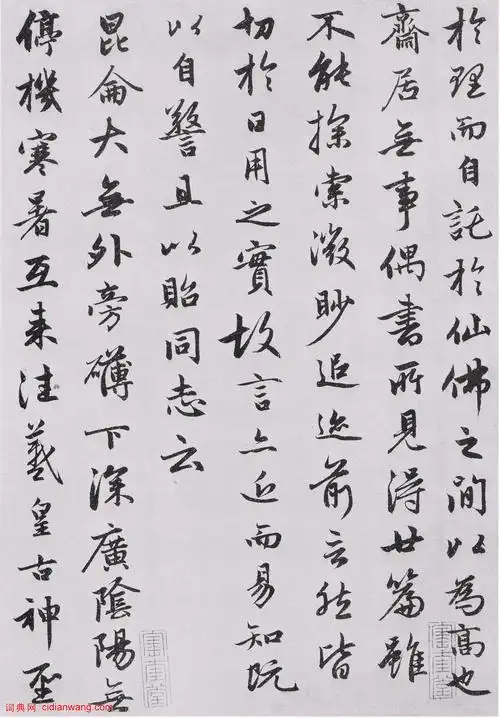 於理而自託於仙佛之間以為高也
齋居無事偶書所見得廿篇雖
不能探索微眇追迹前言然皆
切於日用之實故言亦近而易知既
以自警且以貽同志云
昆侖大無外旁礴下深廣陰陽無
停機寒暑互来往羲皇古神聖
词典网 cidianwang.com